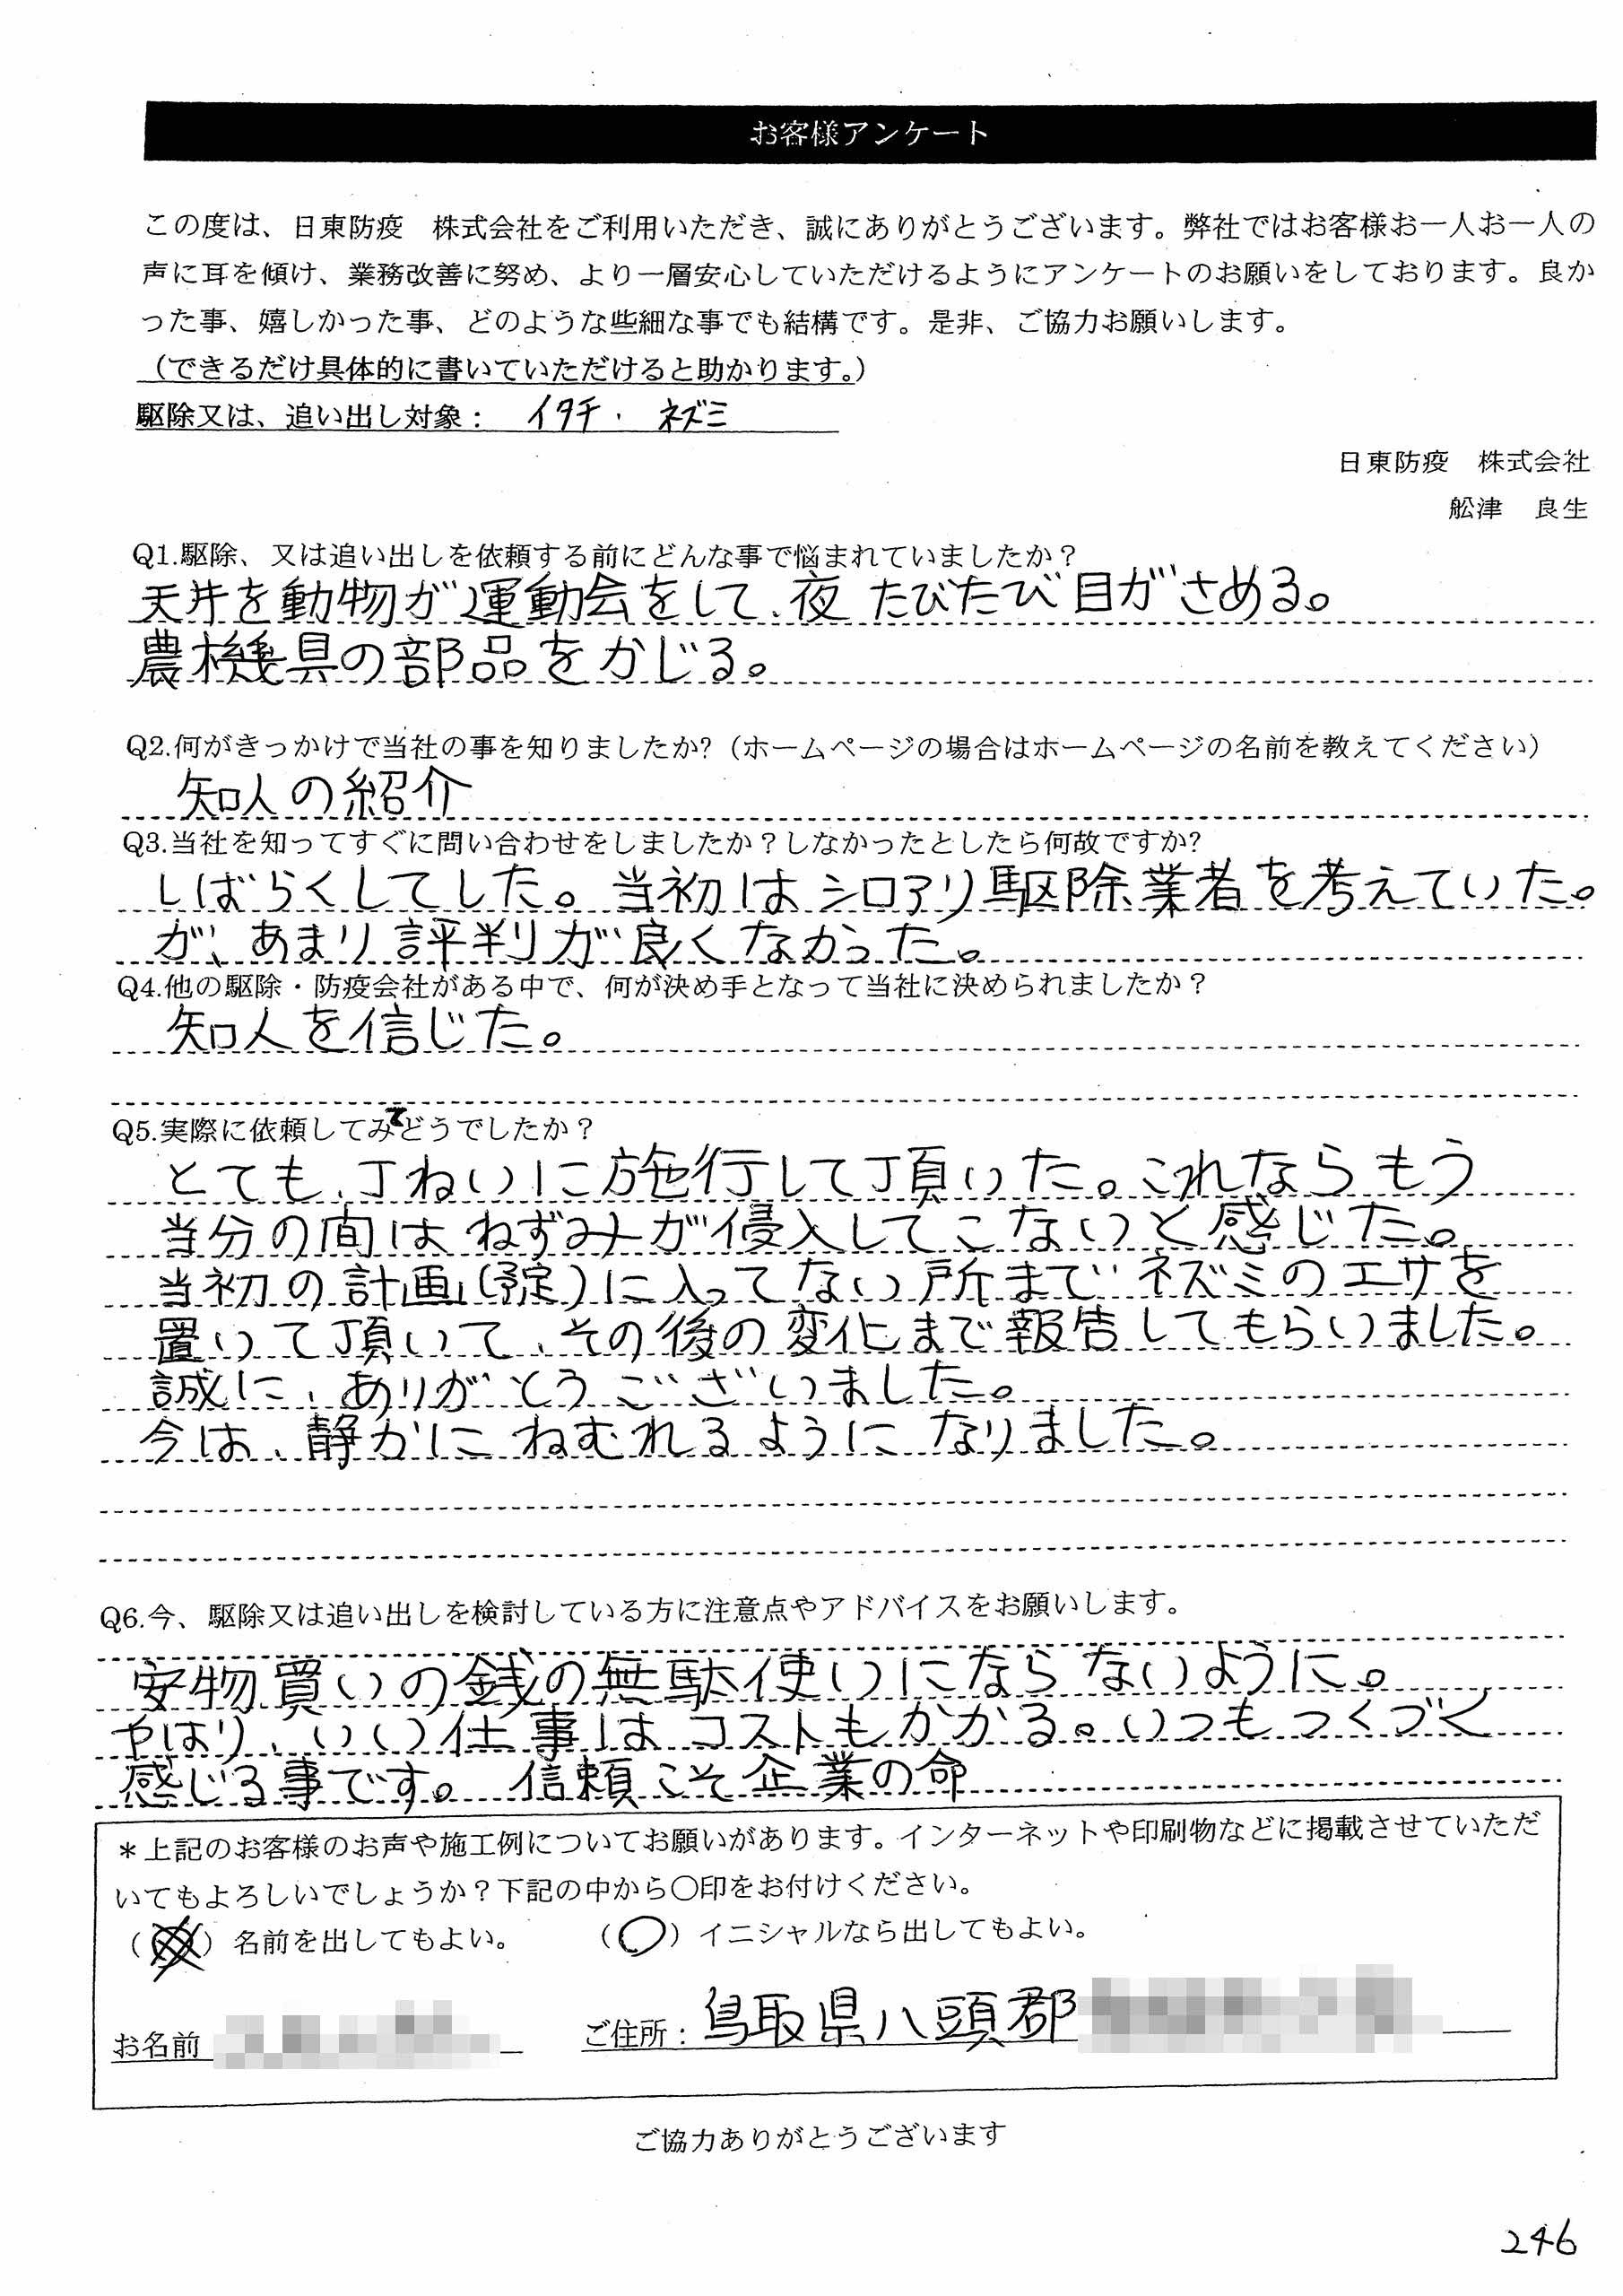 お客様アンケート
この度は、日東防疫　株式会社をご利用いただき、誠にありがとうございます。弊社ではお客様お一人お一人の
声に耳を傾け、業務改善に努め、より一層安心していただけるようにアンケートのお願いをしております。良か
った事、嬉しかった事、どのような些細な事でも結構です。是非、ご協力お願いします。
（できるだけ具体的に書いていただけると助かります。）
駆除又は、追い出し対象： イタチ・ネズミ
日東防疫　株式会社
舩津　良生
Q1.駆除、又は追い出しを依頼する前にどんな事で悩まれていましたか？
天井を動物が運動会をして、夜たびたび目がさめる。
農機具の部品をかじる。
Q2.何がきっかけで当社の事を知りましたか?（ホームページの場合はホームページの名前を教えてください）
知人の紹介
Q3.当社を知ってすぐに問い合わせをしましたか？しなかったとしたら何故ですか?
しばらくしてした。当初はシロアリ駆除業者を考えていた。
が、あまり評判が良くなかった。
Q4.他の駆除・防疫会社がある中で、何が決め手となって当社に決められましたか？
知人を信じた。
Q5.実際に依頼してみてどうでしたか？
とても、丁ねいに施行して頂いた。これならもう
当分の間はねずみが侵入してこないと感じた。
当初の計画(予定)に入ってない所までネズミのエサを
置いて頂いて、その後の変化まで報告してもらいました。
誠に、ありがとうございました。
今は、静かにねむれるようになりました。
Q6.今、駆除又は追い出しを検討している方に注意点やアドバイスをお願いします。
安物買いの銭の無駄使いにならないように。
やはり、いい仕事はコストもかかる。いつもつくづく
感じる事です。信頼こそ企業の命
＊上記のお客様のお声や施工例についてお願いがあります。インターネットや印刷物などに掲載させていただ
いてもよろしいでしょうか？下記の中から〇印をお付けください。
（　）名前を出してもよい。　（〇）イニシャルなら出してもよい。
お名前　ご住所：鳥取県八頭郡
ご協力ありがとうございます
246